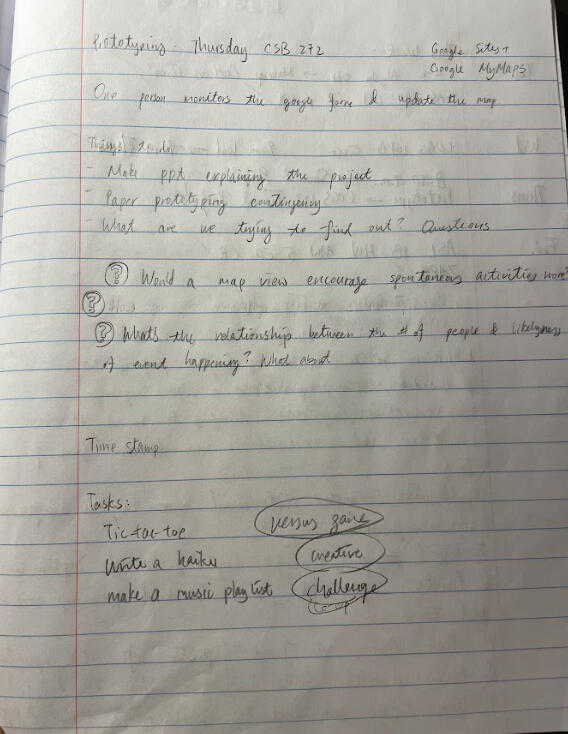 Prototyping: Thursday CSB 272
Google Sites +
Google MyMaps
One person monitors the google form & update the map
Things to do
- Make ppt explaining the project
- Paper prototyping contingency
- What are we trying to find out? Questions
? Would a map view encourage spontaneous activities more?
?
? Whats the relationship between the # of people & likelyness
of event happening? What about
Time stamp:
Tasks:
Tic-tac-toe versus game
Write a haiku creative
make a music playlist challenge
co-op